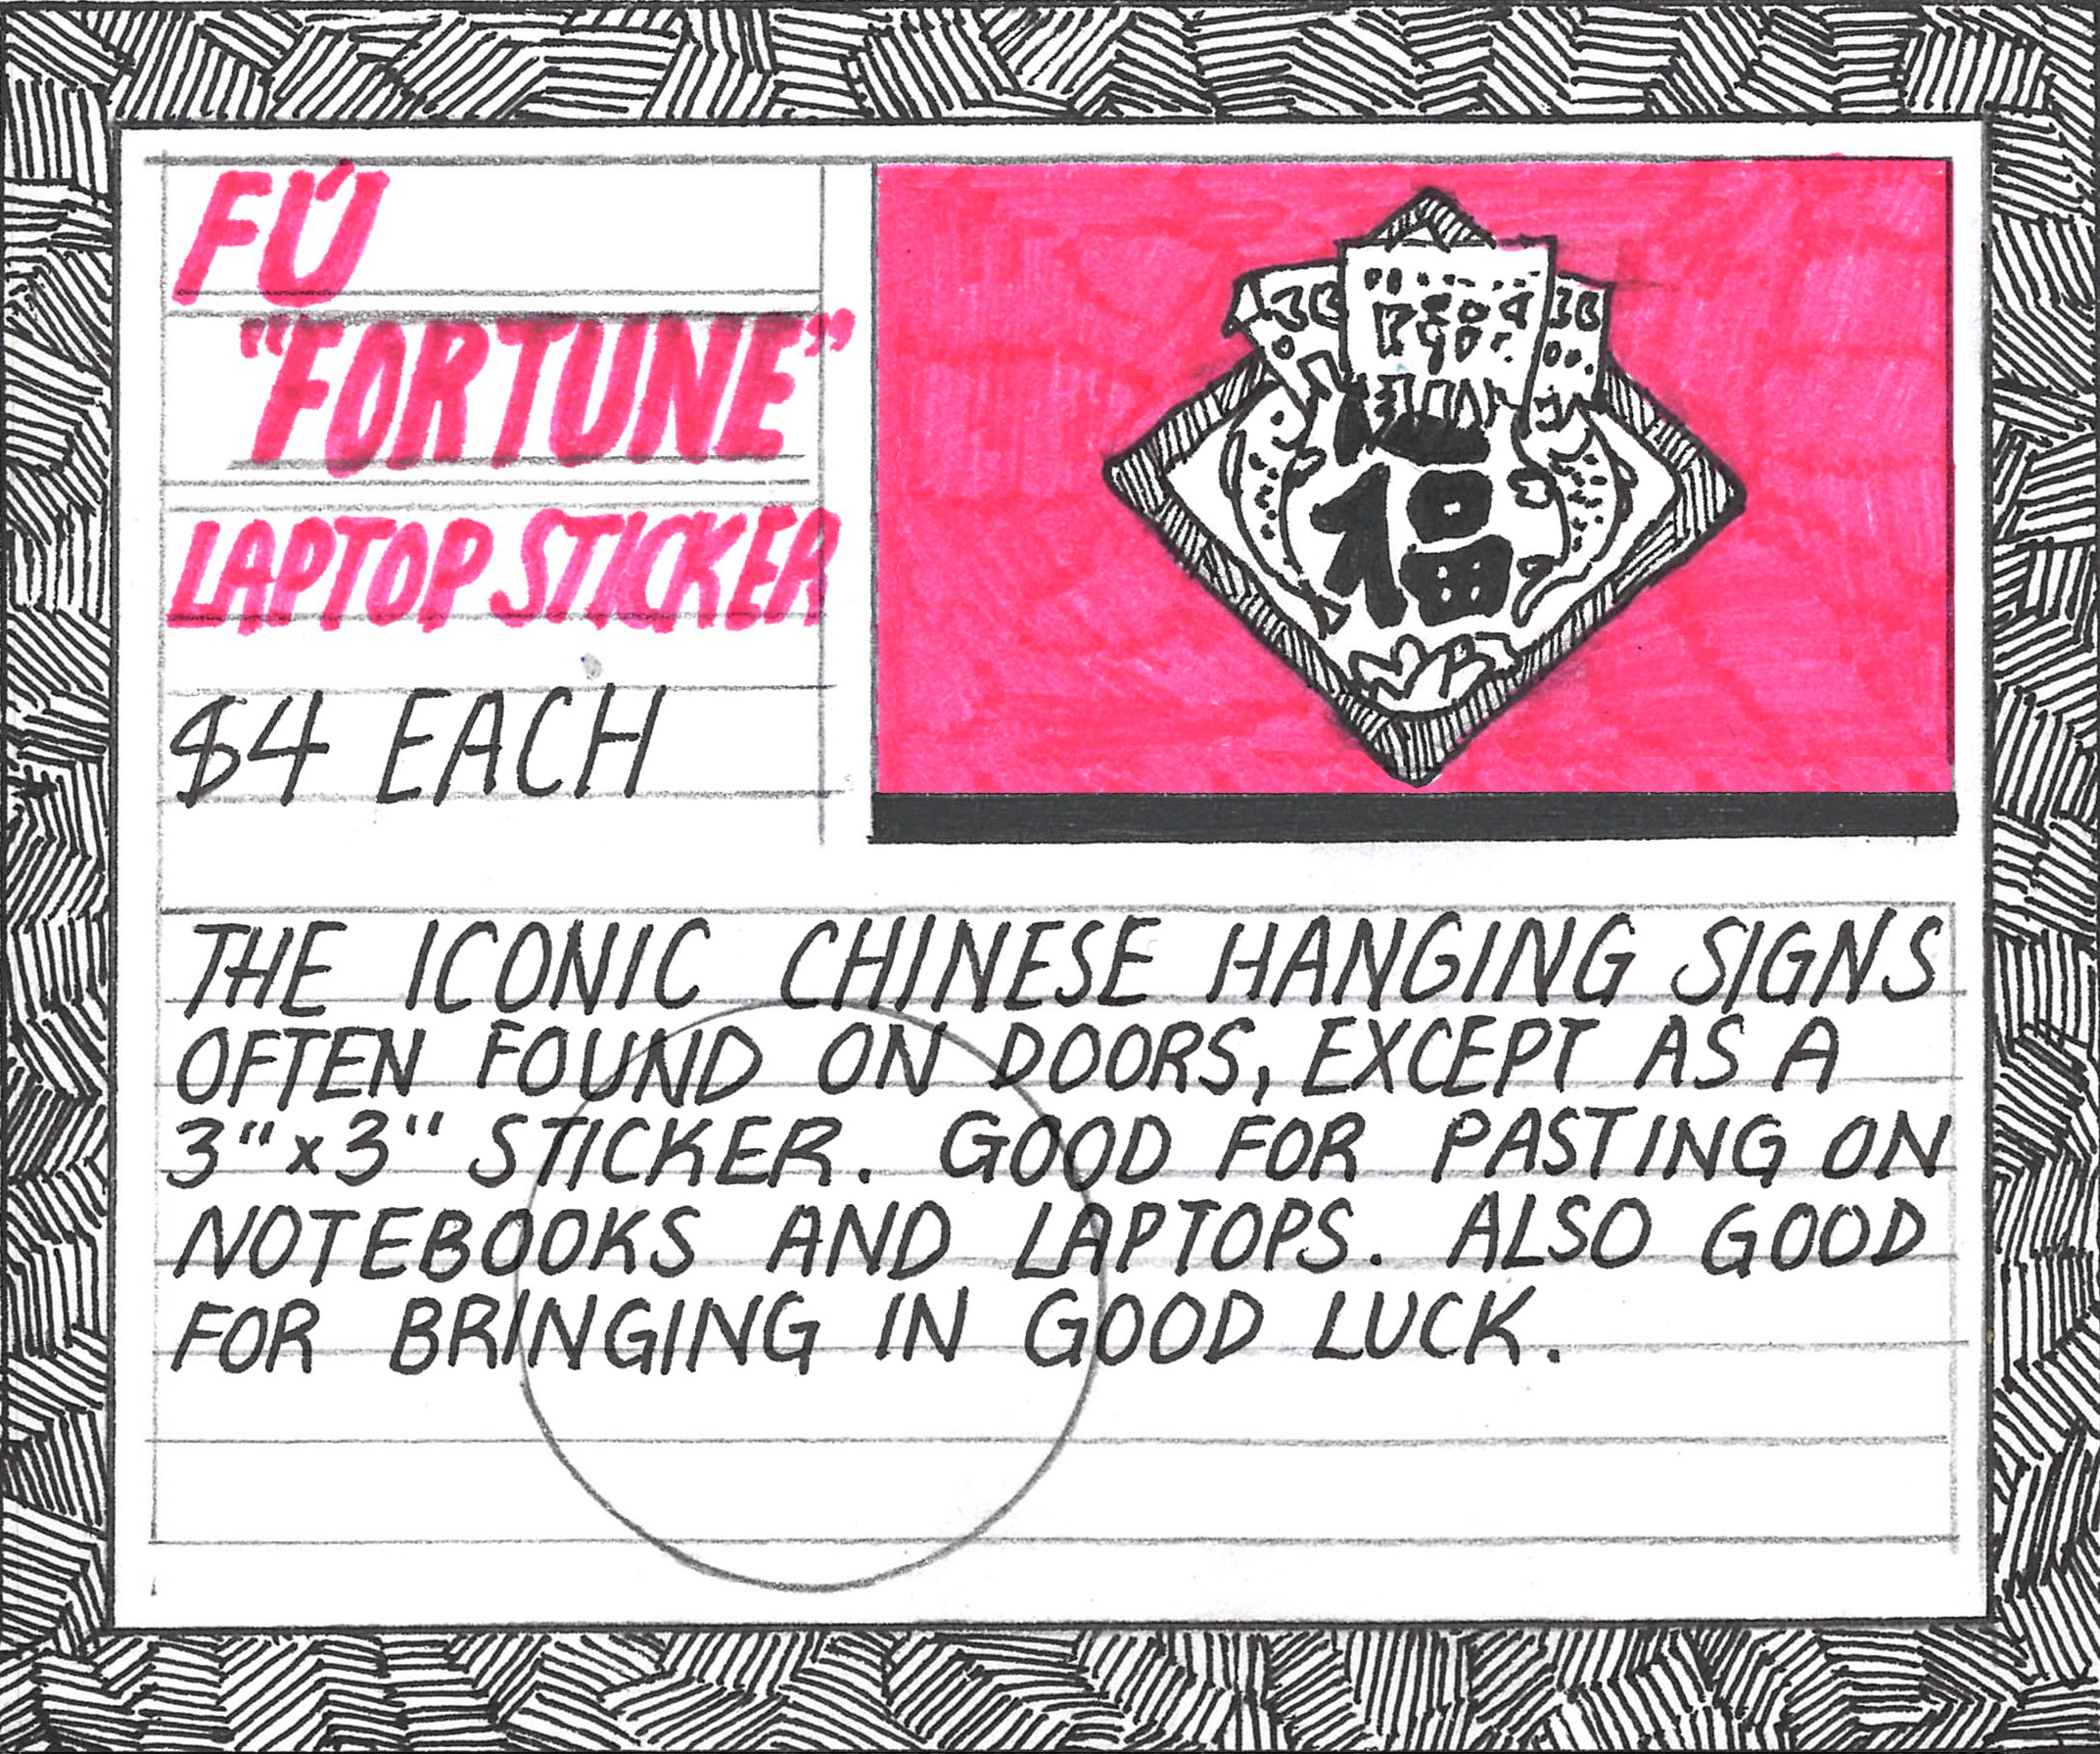 FÚ
"FORTUNE"
LAPTOP STICKER
$4 EACH
福
THE ICONIC CHINESE HANGING SIGNS
OFTEN FOUND ON DOORS, EXCEPT AS A
3"x3" STICKER. GOOD FOR PASTING ON
NOTEBOOKS AND LAPTOPS. ALSO GOOD
FOR BRINGING IN GOOD LUCK.